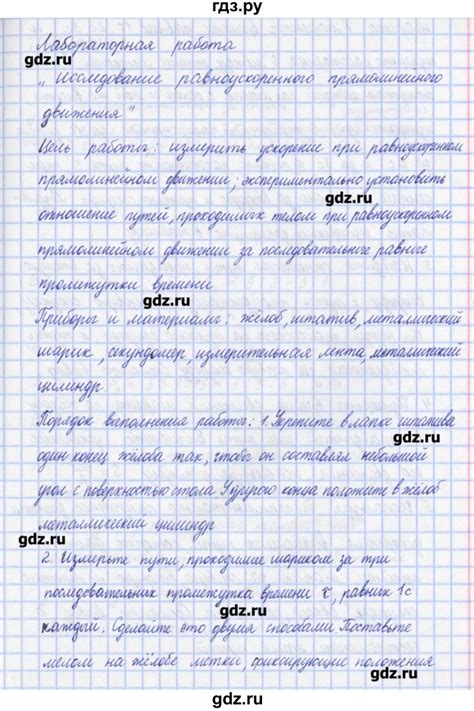 гдз.ру
Лабораторная работа
„Исследование равноускоренного прямолинейного
движения"
Цель работы: измерить ускорение при равноускоренном
прямолинейном движении; экспериментально установить
gdz.ru
отношение путей, проходимых телом при равноускоренном
прямолинейном движении за последовательные равные
промежутки времени
gdz.ru
gdz.ru
Приборы и материалы: жёлоб, штатив, металлический
шарик, секундомер, измерительная лента, металлический
gdz.ru
цилиндр
Порядок выполнения работы: 1. Укрепите в лапке штатива
gdz.ru
один конец жёлоба так, чтобы он составлял небольшой
угол с поверхностью стола У другого конца положите в жёлоб
gdz.ru
металлический цилиндр
2. Измерьте пути, проходимые шариком за три
gdz.ru
последовательных промежутка времени τ, равных 1с
gdz.ru
каждый. Сделайте это двумя способами Поставьте
мелом на жёлобе метки, фиксирующие положения
gdz.ru
gdz.ru